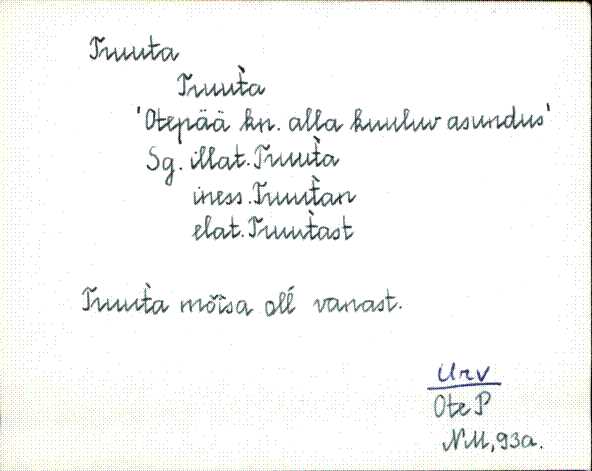 Truuta
Truùta
'Otepää kn. alla kuuluv asundus'
Sg. illat. Truùta
iness. Truùtan
elat. Truùtast
Truùta mõisa olĺ vanast.
Urv
Ote P
NM, 93a.